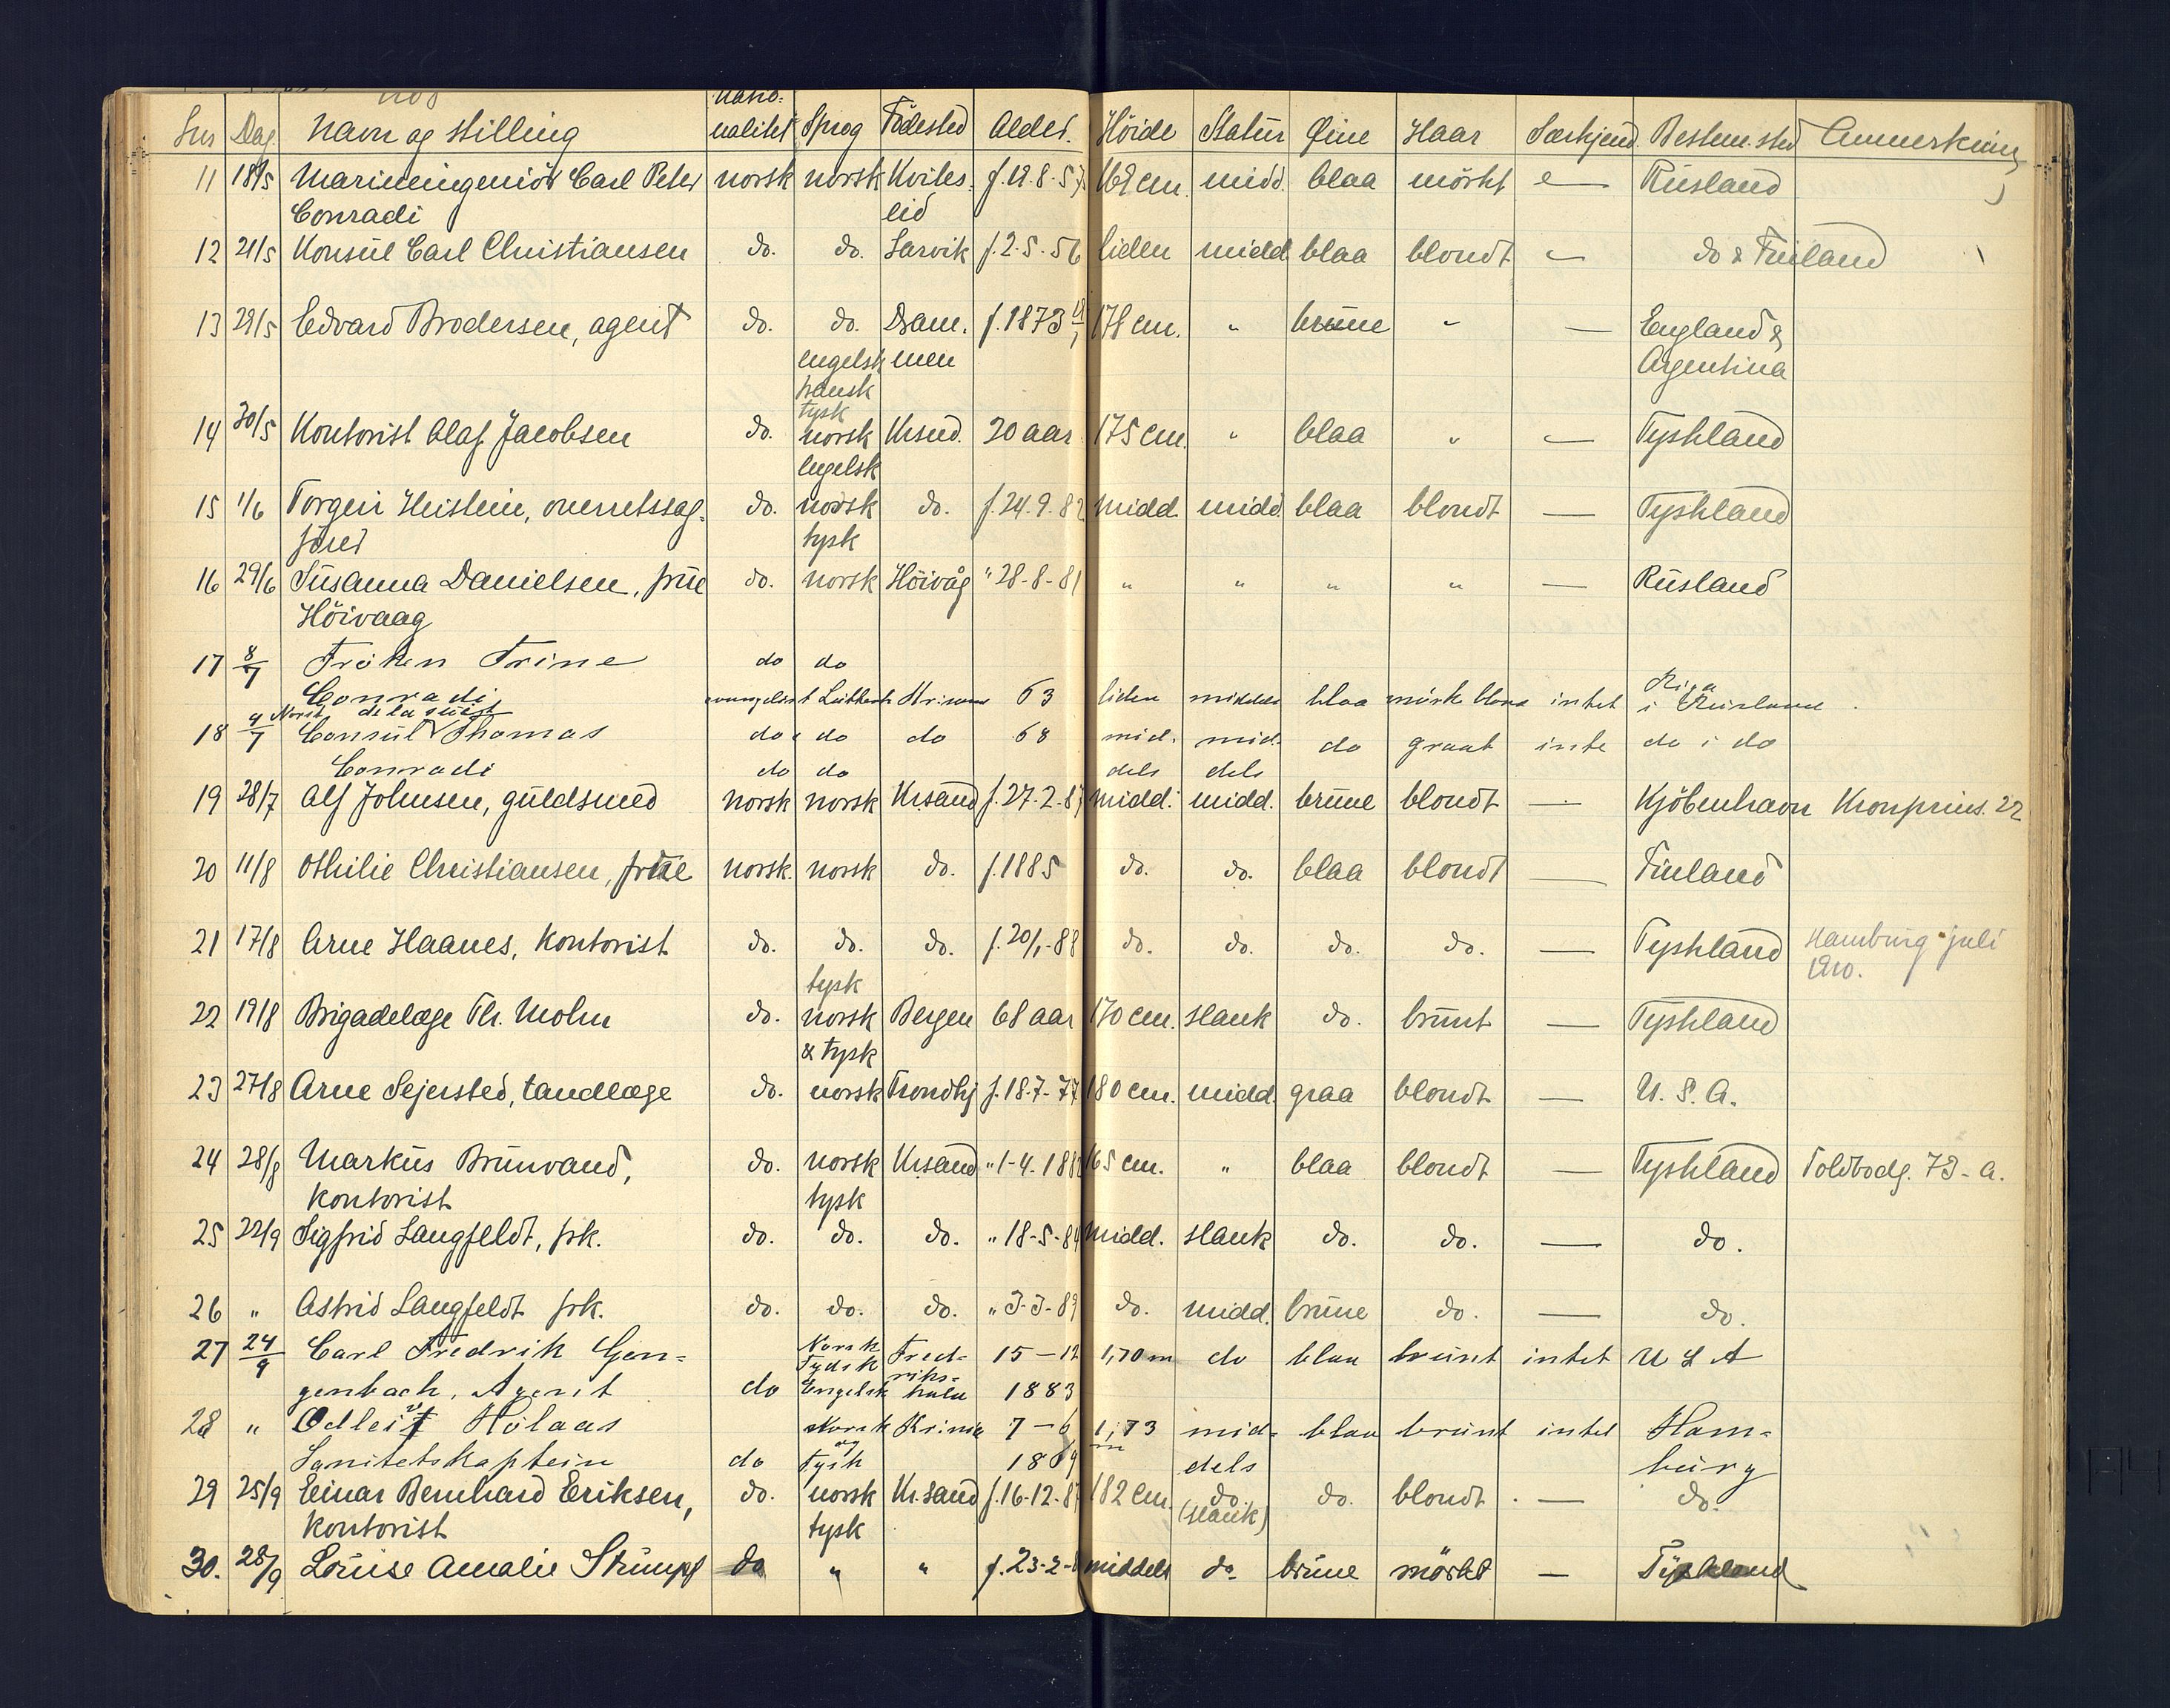 1908
Lnr Dag. Navn og stilling Natio-
nalitet Sprog Födested Alder. Höide Statur Öine Haar Særkjend. Bestem.sted Anmerkning
11 18/5 Marineingeniör Carl Peter norsk norsk Kvites- f. 19.8.57 162 cm. midd. blaa mörkt — Rusland
Conradi eid
12 21/5 Konsul Carl Christiansen do. do. Larvik f. 2-5-56 liden midd blaa blondt — do & Finland
13 29/5 Edvard Brodersen, agent do. do. Dram. f. 1873 178 cm. " brune " — England &
engelsk men Argentina
fransk
tysk
14 30/5 Kontorist Olaf Jacobsen do. norsk Krsnd. 20 aar 175 cm. " blaa " — Tyskland
engelsk
15 1/6 Torgeir Heistein, overretssag- do. norsk do. f. 24.9.82 midd. midd blaa blondt — Tyskland
förer tysk
16 29/6 Susanna Danielsen, frue do. norsk Höivåg " 28-8-81 " " " " — Rusland
Höivaag
17 8/7 Fröken Trine do do
Conradi 63 liden middels blaa mörk blond intet Riga i Rusland
18 9/7 Norsk
Consul Thomas do do do 68 mid- mid- do graat inte do i do
Conradi do do dels dels
19 28/7 Alf Johnsen, guldsmed norsk norsk Krsand f. 27-2-87 midd. midd. brune blondt — Kjöbenhavn Kronprins. 22
20 11/8 Othilie Christiansen, frue norsk. norsk do. f. 1885 do. do. blaa blondt — Finland
21 17/8 Arne Haanes, kontorist do. do. do. f. 20/1-88 do. do. do. do. — Tyskland Hamburg juli
tysk 1910.
22 19/8 Brigadelæge Th. Mohn do. norsk Bergen 68 aar 170 cm. slank do. brunt — Tyskland
& tysk
23 27/8 Arne Sejersted, tandlæge do. norsk Trondhj f. 18-7-77 180 cm. midd. graa blondt — U. S. A.
24 28/8 Markus Brunvand, do. norsk Krsand " 1-4.1882 165 cm. " blaa blondt — Tyskland Toldbodg. 73-a.
kontorist tysk
25 22/9 Sigfrid Langfeldt, frk. do. do. do. " 18-5-84 midd. slank do. do. — do.
26 " Astrid Langfeldt frk. do. do. do. " 3-3-89 do. midd. brune do. — do.
27 24/9 Carl Fredrik Gen- Norsk Tydsk Fred- 15-12 1,70 m do blaa brunt intet U S A
genbach, Agent do Engelsk riks- hald 1883
28 " Odleiv Holaas Norsk Krinia 7-6 1,73 m mid- blaa brunt intet Ham-
Sanitetskaptein do og Tysk dels burg
29 25/9 Einar Bernhard Eriksen, do. norsk Kr.sand f. 16-12-87 182 cm. do. do. blondt. — do.
kontorist tysk (slank)
30. 28/9 Louise Amalie Stumpf do " " f. 23-2- middels do. brune mörkt — Tyskland